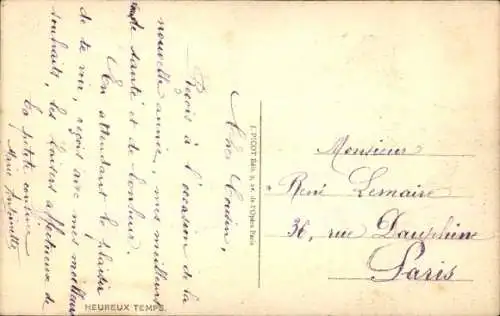 Cher Cousin,
Reçois à l'occasion de la
nouvelle année, mes meilleurs
de santé et de bonheur.
En attendant le plaisir
de te voir, reçois avec mes meilleurs
souhaits, les baisers affectueux de
ta petite cousine
Marie Antoinette
HEUREUX TEMPS.
J. PICOT Édit. de l'Opéra Paris
Monsieur
René Lemaire
36, rue Dauphine
Paris